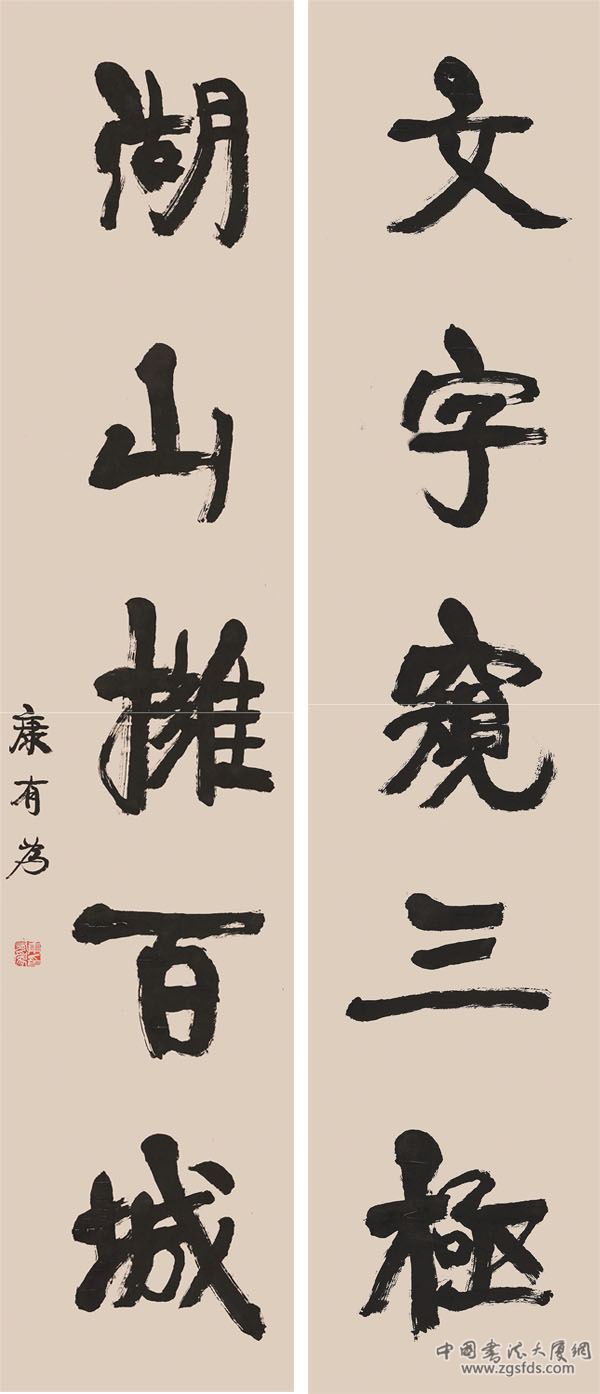 文字窺三極
湖山擁百城
康有為
中國書法大廈網
www.zgsfds.com